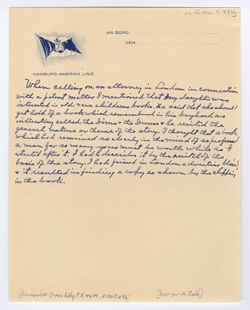 AN BORD
DEN
HAMBURG-AMERIKA LINIE
When calling on an attorney in London in connection
with a patent matter I mentioned that my daughter was
interested in old rare childrens books. He said that she should
get hold of a book which remembered in his boyhood as
interesting called the Dime & the Drum & he recited the
general nature or theme of the story. I thought that a book
which had remained so clearly in the mind of so
a man for so many years must be worth while so I
started after it. I had to describe it by the recital of the
basis of the story. I had friend in London advertise
& it resulted in finding a copy as shown by the
in this book.
(Removed from
[George A. Ball]